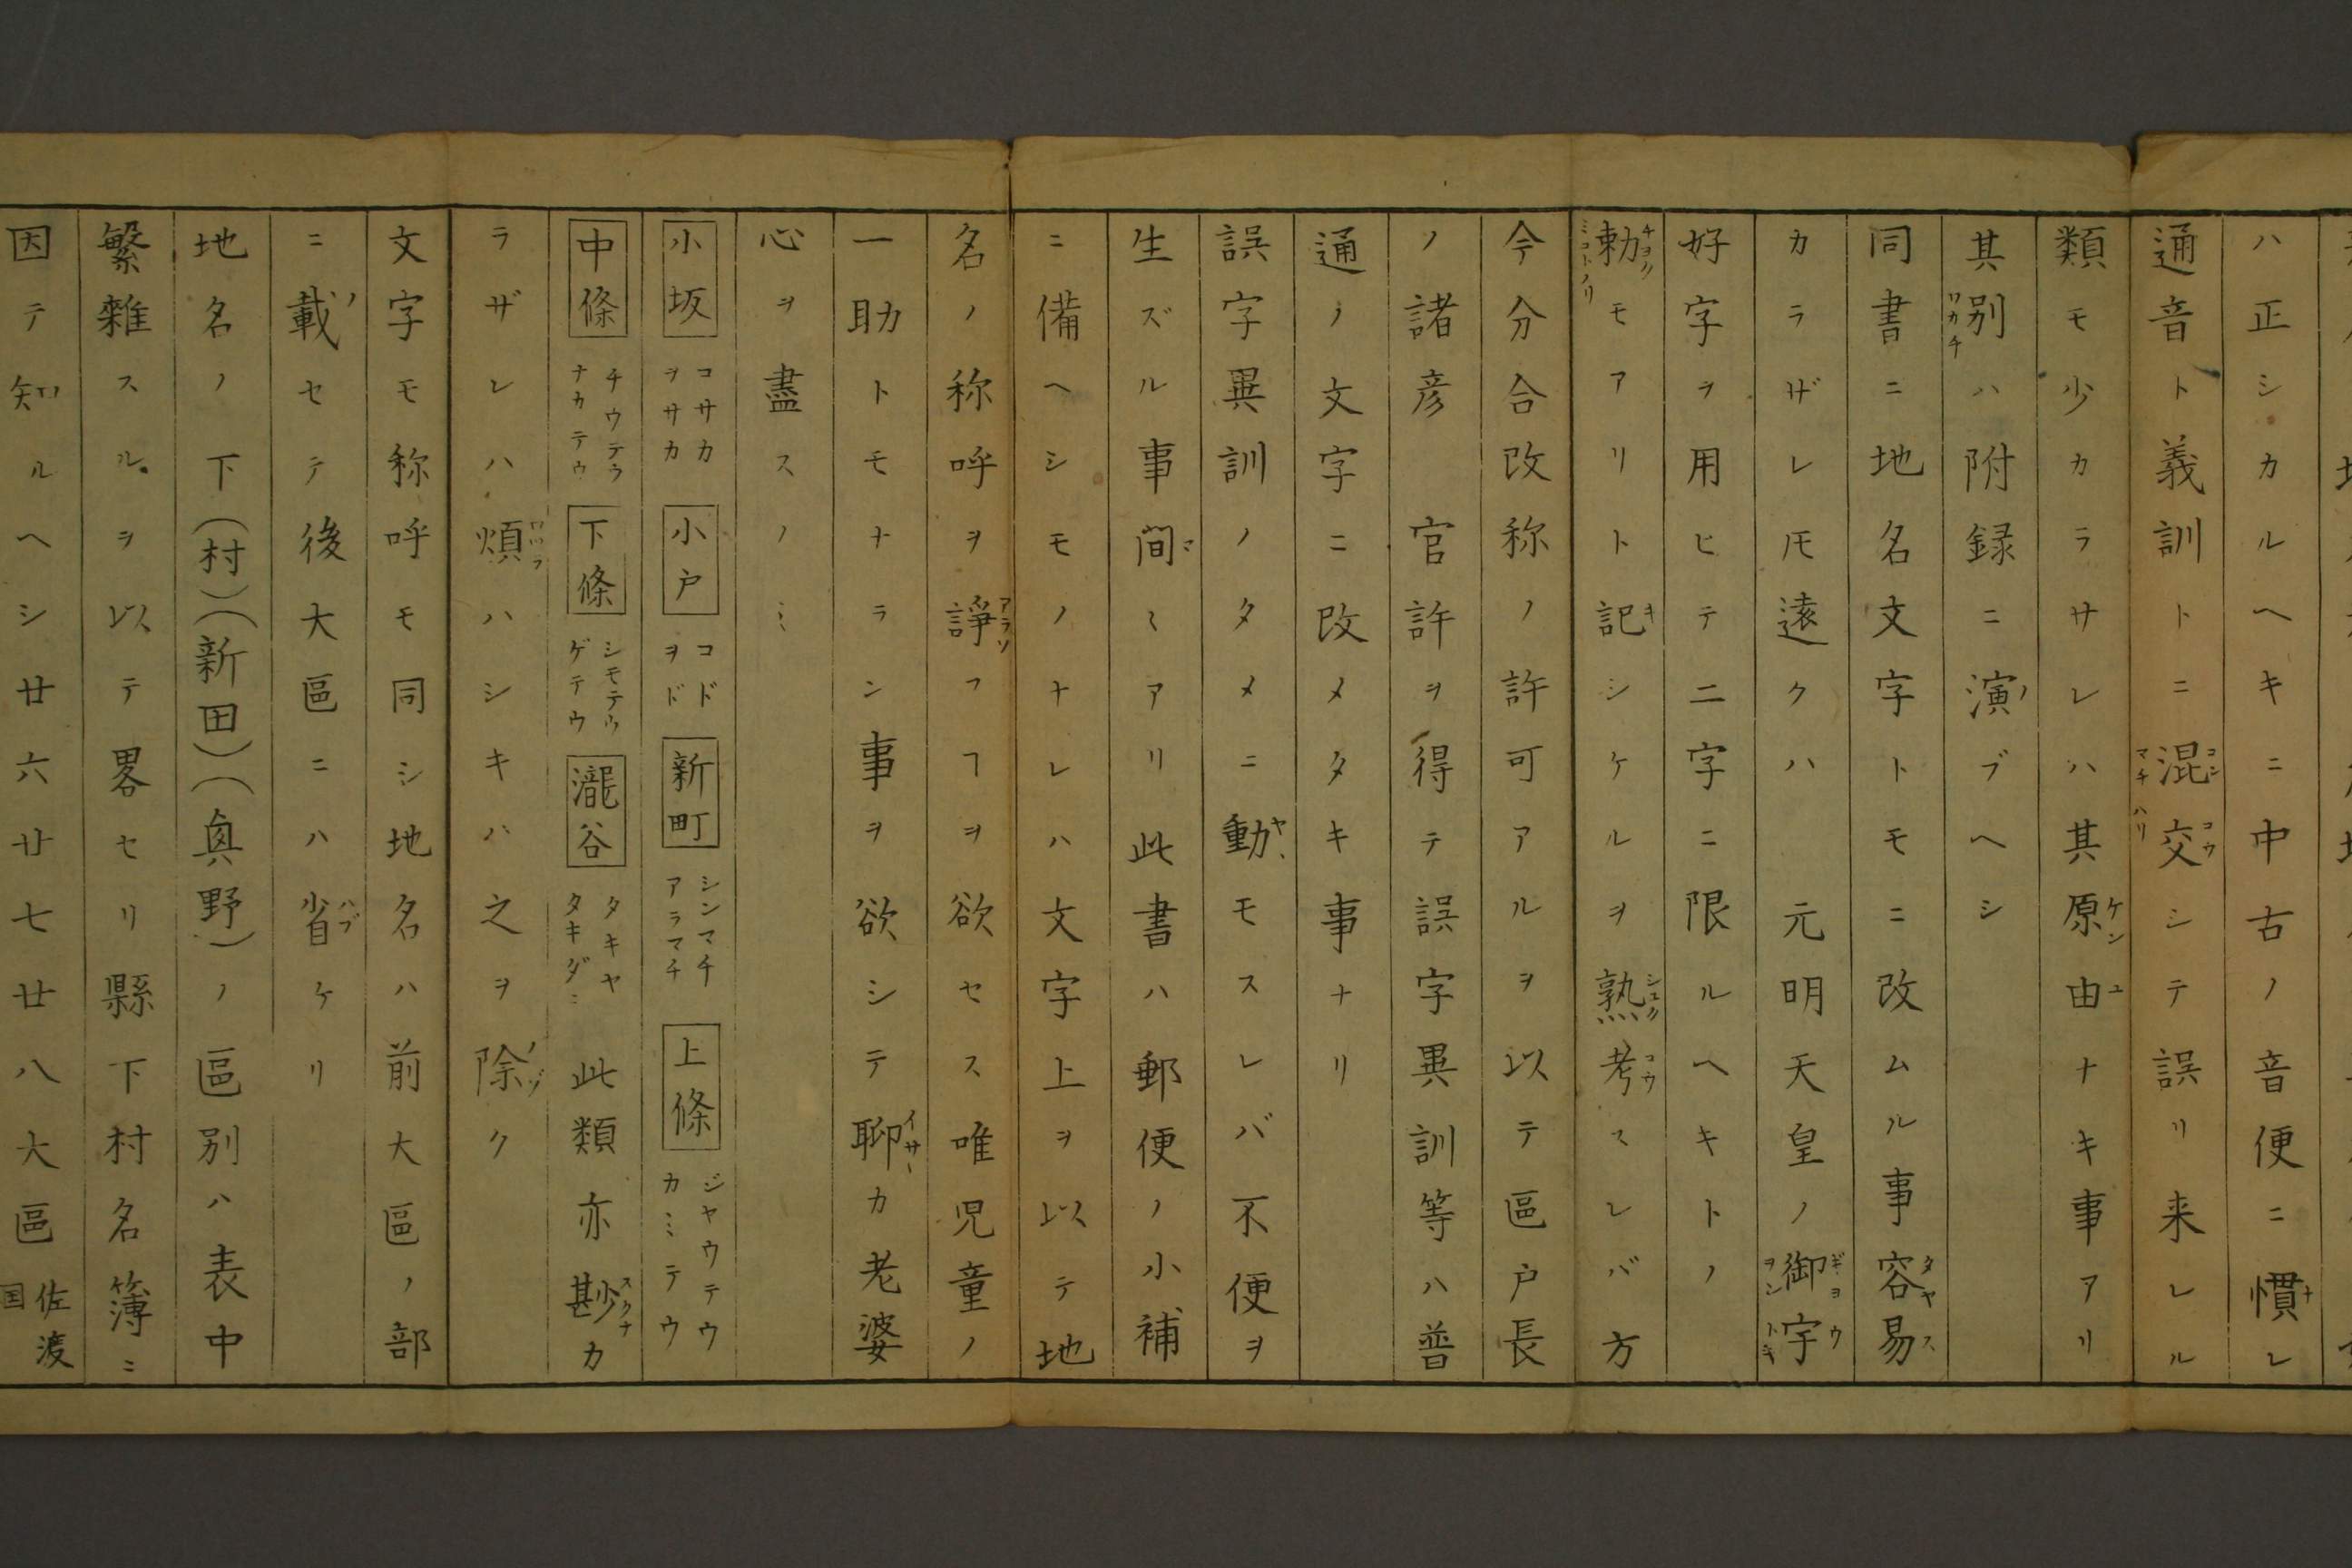 ハ正シカルヘキニ中古ノ音便ニ慣レ
通音ト義訓トニ混交シテ誤リ来レル
類モ少カラサレハ其原由ナキ事アリ
其別ハ附録ニ演ブヘシ
同書ニ地名文字トモニ改ムル事容易
カラザレ𪜈遠クハ 元明天皇ノ御宇
好字ヲ用ヒテ二字ニ限ルヘキトノ
勅モアリト記シケルヲ熟考スレバ方
今分合改称ノ許可アルヲ以テ區戸長
ノ諸彦 官許ヲ得テ誤字異訓等ハ普
通ノ文字ニ改メタキ事ナリ
誤字異訓ノタメニ動モスレバ不便ヲ
生ズル事間〻アリ此書ハ郵便ノ小補
ニ備ヘシモノナレハ文字上ヲ以テ地
名ノ称呼ヲ諍フヿヲ欲セス唯児童ノ
一助トモナラン事ヲ欲シテ聊カ老婆
心ヲ盡スノミ
小坂 コサカ ヲサカ 小戸 コド ヲド 新町 シンマチ アラマチ 上條 ジヤウテウ カミテウ
中條 チウテウ ナカテウ 下條 シモテウ ゲテウ 瀧谷 タキヤ タキダニ 此類亦尠カ
ラザレハ煩ハシキバ之ヲ除ク
文字モ称呼モ同シ地名ハ前大區ノ部
ニ載セテ後大區ニハ省ケリ
地名ノ下(村)(新田)(興野)ノ區別ハ表中
繁雜スルヲ以テ畧セリ縣下村名簿ニ
因テ知ルヘシ廿六廿七廿八大區 佐渡国